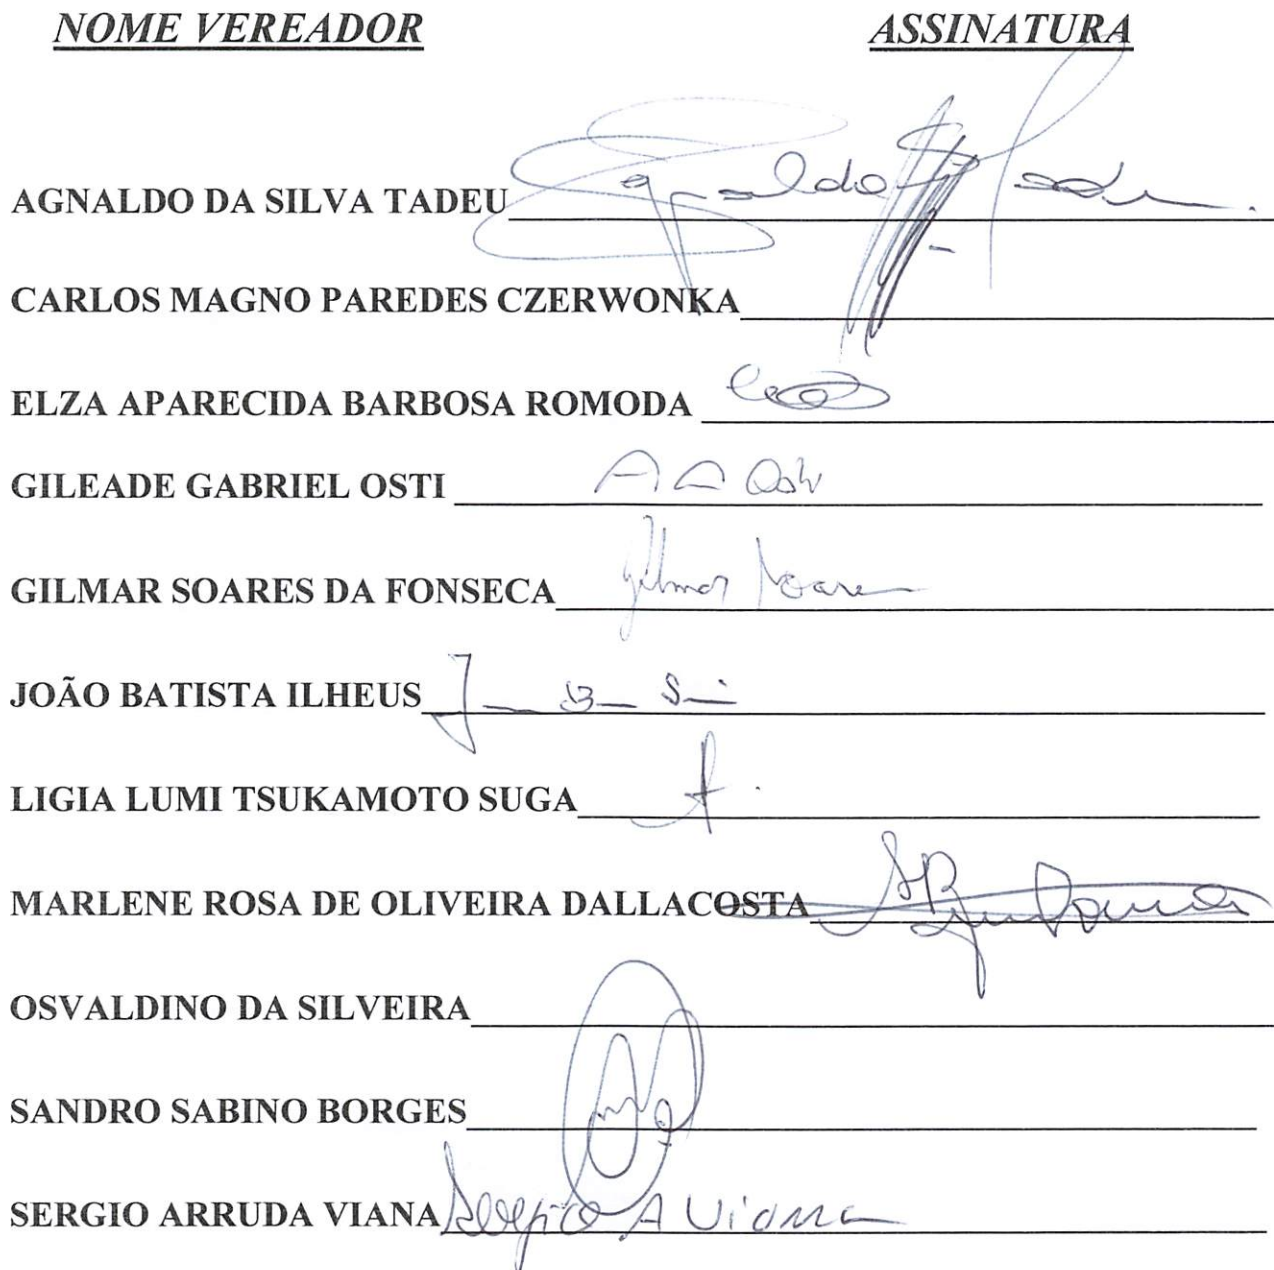 NOME VEREADOR ASSINATURA
AGNALDO DA SILVA TADEU Agnaldo
CARLOS MAGNO PAREDES CZERWONKA
ELZA APARECIDA BARBOSA ROMODA
GILEADE GABRIEL OSTI
GILMAR SOARES DA FONSECA Gilmar Soares
JOÃO BATISTA ILHEUS
LIGIA LUMI TSUKAMOTO SUGA
MARLENE ROSA DE OLIVEIRA DALLACOSTA
OSVALDINO DA SILVEIRA
SANDRO SABINO BORGES
SERGIO ARRUDA VIANA Sergio A Viana